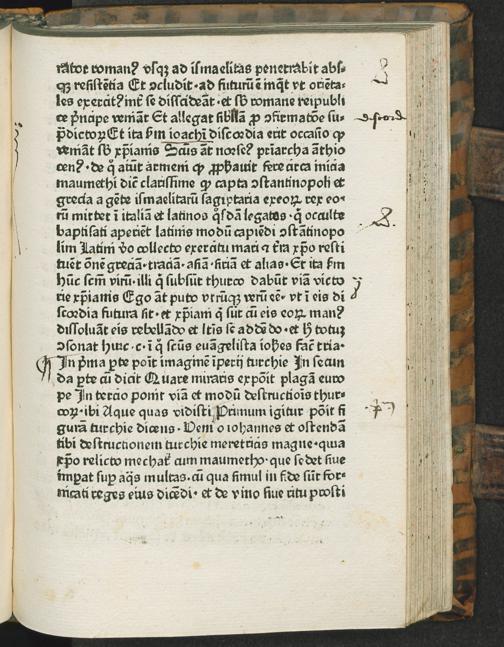 rator roman⁊ vsqꝫ ad ismaelitas penetrabit abs-
qꝫ resistētia Et ꝯcludit · ad futurū ē inqͥt vt oriēta-
les exercit⁹ int̄ se dissideāt · et sb̄ romane reipubli
ce pͥncipe veniāt Et allegat sibillā ꝓ ꝯfirmatōe su-
pͣdictoꝝ Et ita sm̄ ioachī discordia erit occasio ꝙ
veniāt sb̄ xp̄ianis Scūs āt norses⁹ pͥriarcha āthio
cen⁹ · de qͦ aiūt armeni ꝙ ꝓphauit fere circa inicia
maumethi diē clarissime ꝙ capta ꝯstantinopoli et
grecia a gēte ismaelitarū sagiptaria exeoꝝ rex eo-
rū mittet ī italiā et latinos qͦsdā legatos · qͥ occulte
baptisati aperiēt latinis modū capiēdi ꝯstātinopo
lim Latini v̄o collecto exercitu mari ⁊ t̄ra xp̄o resti
tuēt ōnē greciā · traciā · asiā · siriā et alias · Et ita sm̄
hūc scm̄ virū · illi qͥ subsūt thurco dabūt viā victo
rie xp̄ianis Ego āt puto vtrūqꝫ verū eē · vt ī eis di
scordia futura sit · et xp̄iani qͥ sūt cū eis eoꝝ man⁹
dissoluāt eis rebellādo et lr̄is se addēdo · et h̄ totuꝫ
ꝯsonat huic · c · ī qͦ scūs euāgelista ioh̄es fac̄ tria ·
In pͥma ꝑte poīt imaginē īperij turchie In secun
da ꝑte cū dicit Quare miraris expōit plagā euro
pe In tercio ponit viā et modū destructiōis thur-
coꝝ · ibi Aque quas vidisti Primum igitur pōit fi
gurā turchie dicens · Veni o iohannes et ostendā
tibi destructionem turchie meretricis magne · qua
xp̄o relicto mechat᷑ cum maumetho · que sedet siue
imꝑat suꝑ aq̄s multas · cū qua simul in fide sūt for-
nicati reges eius dicēdi · et de vino siue ritu prosti